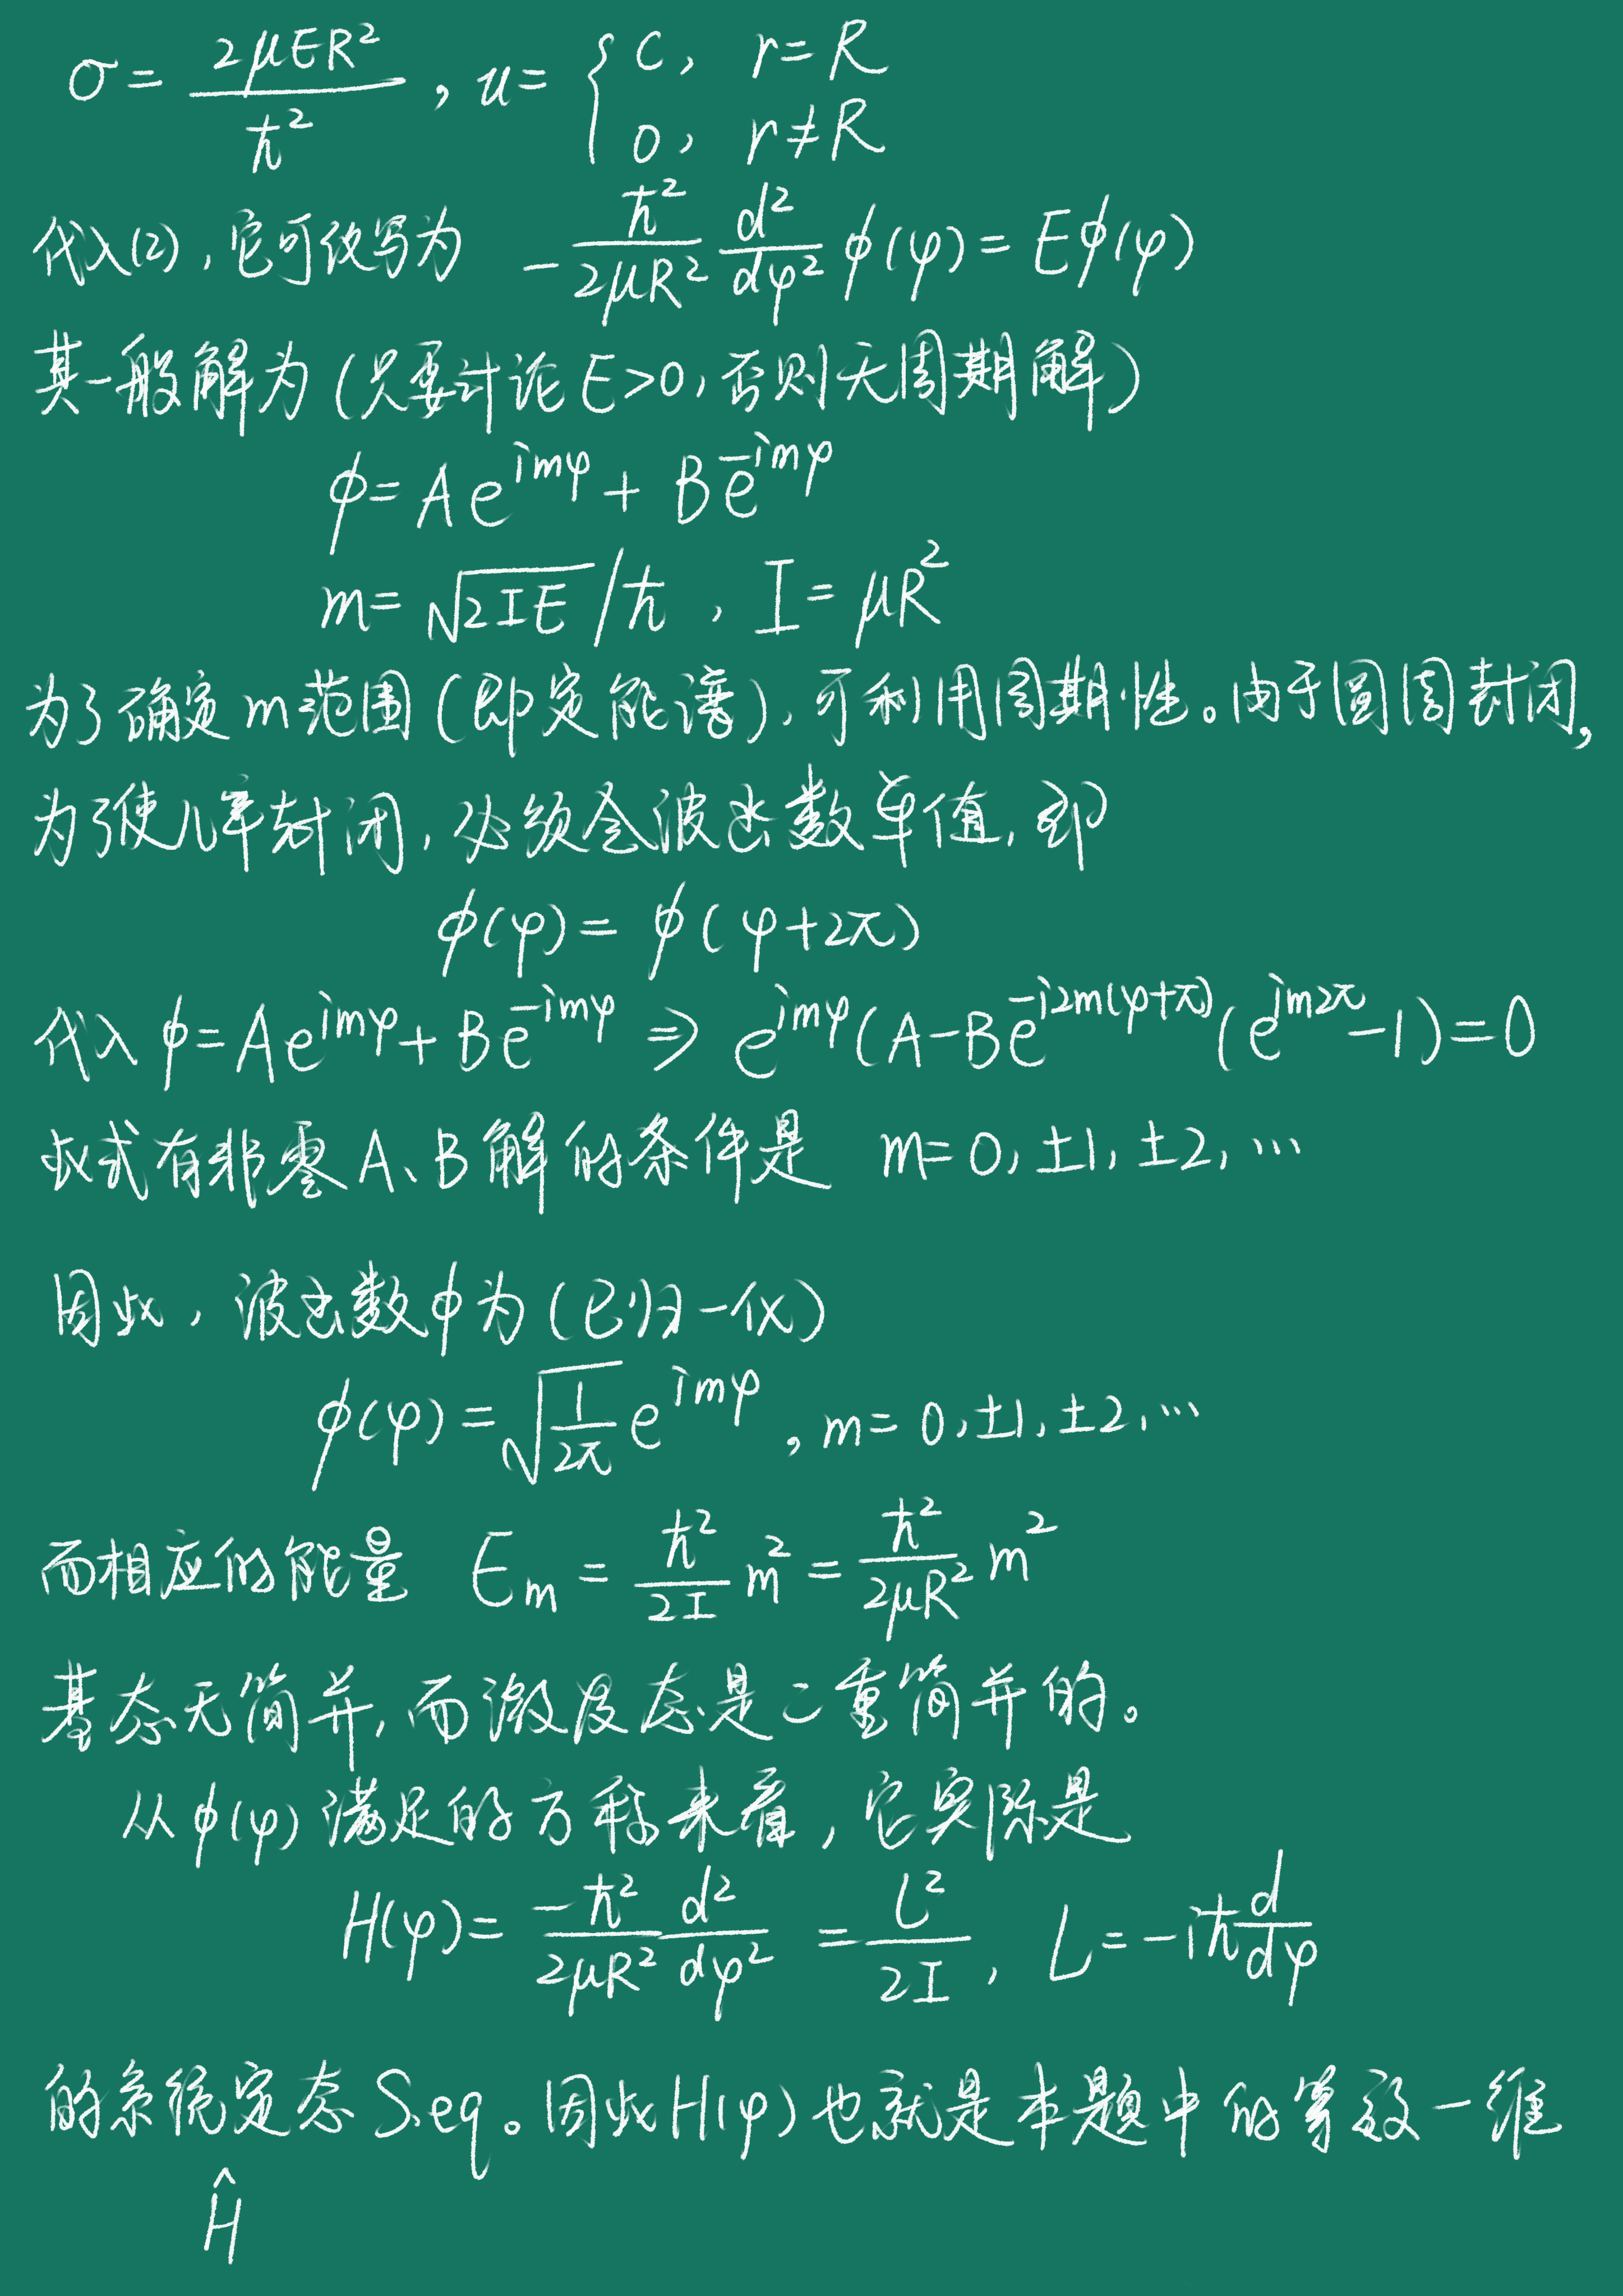 σ = 2μER² / ħ² , u = { C, r = R
0, r ≠ R
代入(2), 它可改写为 -ħ²/2μR² d²/dφ² ϕ(φ) = Eϕ(φ)
其一般解为 (只要讨论 E>0, 否则无周期解)
ϕ = Ae^{imφ} + Be^{-imφ}
m = √2IE / ħ , I = μR²
为了确定m范围(即定能谱), 可利用周期性。由于圆周封闭,
为了使几率封闭, 必须令波函数单值, 即
ϕ(φ) = ϕ(φ+2π)
代入 ϕ = Ae^{imφ} + Be^{-imφ} ⇒ e^{imφ}(A-Be^{-i2m(φ+π)}(e^{im2π}-1) = 0
此式有非零A、B解的条件是 m = 0, ±1, ±2, …
因此, 波函数ϕ为(已归一化)
ϕ(φ) = √(1/2π) e^{imφ} , m = 0, ±1, ±2, …
而相应的能量 E_m = ħ²/2I m² = ħ²/2μR² m²
基态无简并, 而激发态是二重简并的。
从ϕ(φ)满足的方程来看, 它实际是
H(φ) = -ħ²/2μR² d²/dφ² = L²/2I , L = -iħ d/dφ
的系统定态S.eq。因此H(φ)也就是本题中的等效一维
Ĥ